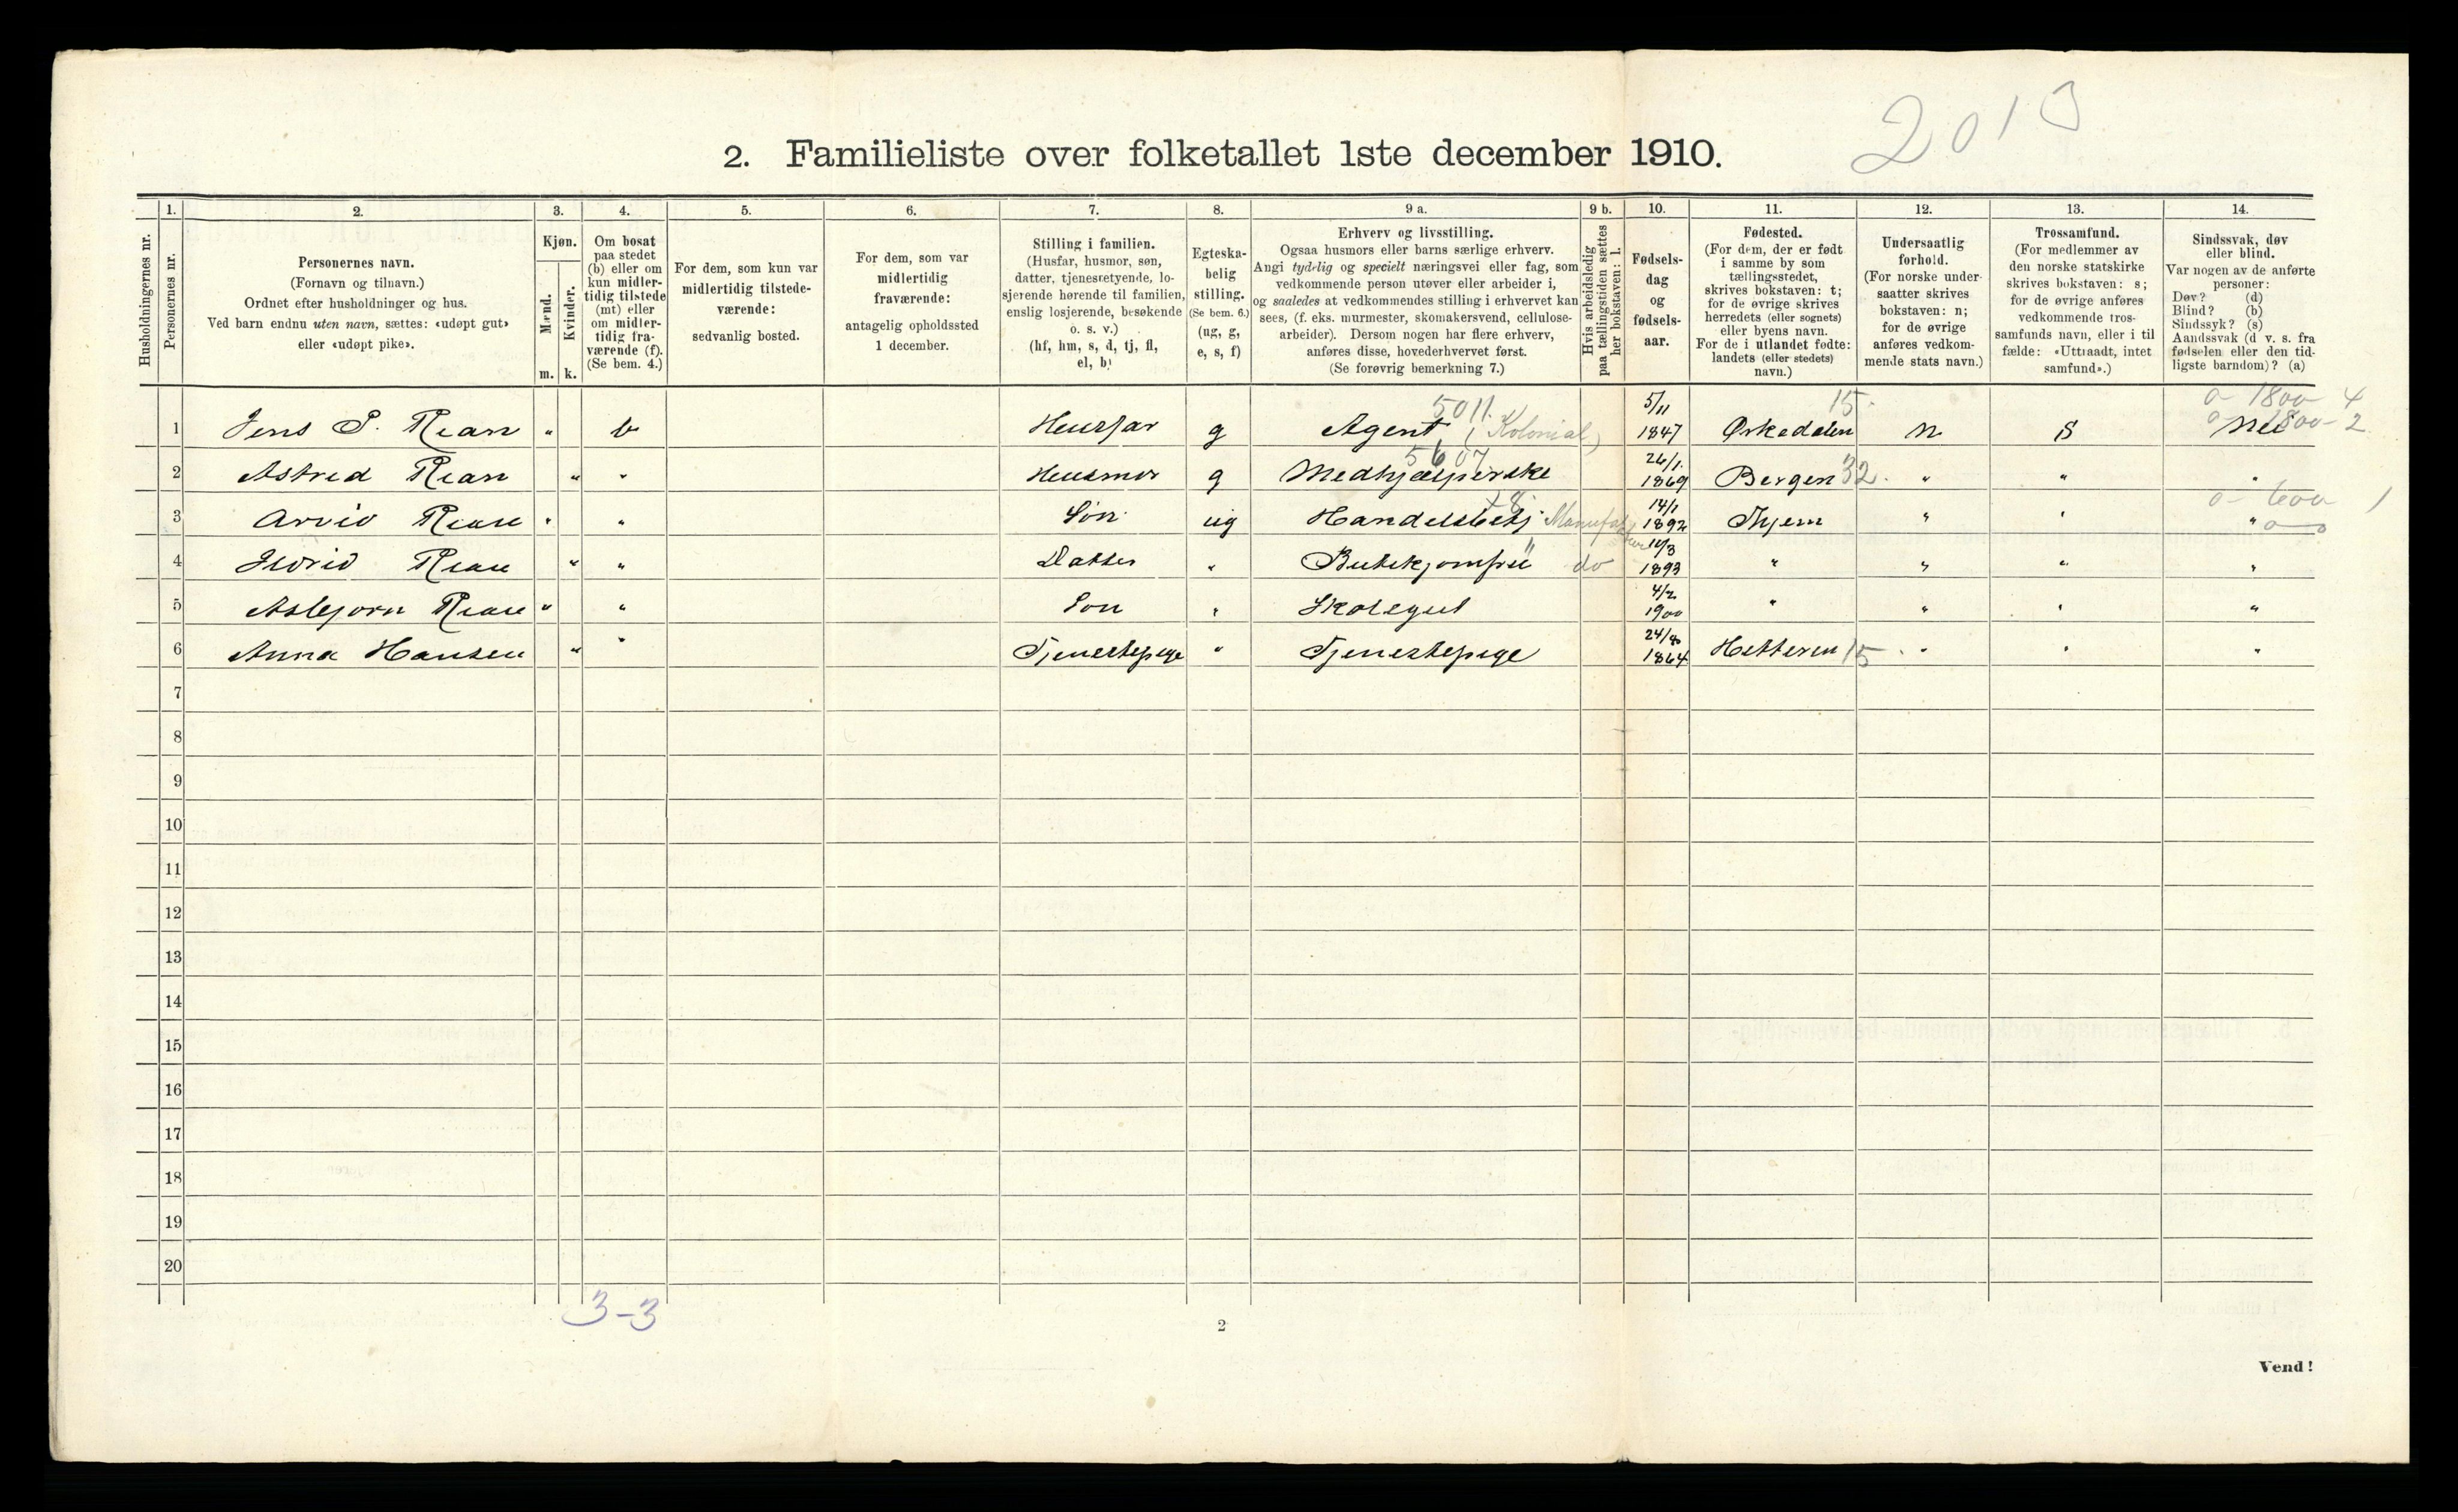 2013
2. Familieliste over folketallet 1ste december 1910.
1. 2. 3. 4. 5. 6. 7. 8. 9 a. 9 b. 10. 11. 12. 13. 14.
Husholdningernes nr.
Personernes nr.
Personernes navn.
(Fornavn og tilnavn.)
Ordnet efter husholdninger og hus.
Ved barn endnu uten navn, sættes: «udøpt gut»
eller «udøpt pike».
Kjøn.
Mænd.
Kvinder.
m. k.
Om bosat
paa stedet
(b) eller om
kun midler-
tidig tilstede
(mt) eller
om midler-
tidig fra-
værende (f).
(Se bem. 4.)
For dem, som kun var
midlertidig tilstede-
værende:
sedvanlig bosted.
For dem, som var
midlertidig
fraværende:
antagelig opholdssted
1 december.
Stilling i familien.
(Husfar, husmor, søn,
datter, tjenestetyende, lo-
sjerende hørende til familien,
enslig losjerende, besøkende
o. s. v.)
(hf, hm, s, d, tj, fl,
el, b)
Egteska-
belig
stilling.
(Se bem. 6.)
(ug, g,
e, s, f)
Erhverv og livsstilling.
Ogsaa husmors eller barns særlige erhverv.
Angi tydelig og specielt næringsvei eller fag, som
vedkommende person utøver eller arbeider i,
og saaledes at vedkommendes stilling i erhvervet kan
sees, (f. eks. murmester, skomakersvend, cellulose-
arbeider). Dersom nogen har flere erhverv,
anføres disse, hovederhvervet først.
(Se forøvrig bemerkning 7.)
Hvis arbeidsledig
paa tællingstiden sættes
her bokstaven: l.
Fødsels-
dag
og
fødsels-
aar.
Fødested.
(For dem, der er født
i samme by som
tællingsstedet,
skrives bokstaven: t;
for de øvrige skrives
herredets (eller sognets)
eller byens navn.
For de i utlandet fødte:
landets (eller stedets)
navn.)
Undersaatlig
forhold.
(For norske under-
saatter skrives
bokstaven: n;
for de øvrige
anføres vedkom-
mende stats navn.)
Trossamfund.
(For medlemmer av
den norske statskirke
skrives bokstaven: s;
for de øvrige anføres
vedkommende tros-
samfunds navn, eller i til
fælde: «Uttraadt, intet
samfund».)
Sindssvak, døv
eller blind.
Var nogen av de anførte
personer:
Døv? (d)
Blind? (b)
Sindssyk? (s)
Aandssvak (d v. s. fra
fødselen eller den tid-
ligste barndom)? (a)
5011. 5/11 15. 0- 1800 4
1 Jens P. Rian " b Husfar g Agent (Kolonial) 1847 Ørkedalen n s Nei 0- 1800-2
5607 26/1
2 Astrid Rian " " Husmor g Medhjælperske 1869 Bergen 32. " " "
14/1 0- 600 1
3 Arvid Rian " " Søn ug Handelsbetj 1892 Thjem " " "
4 Rian " " Datter " Butikjomfru do 1893 " " " "
4/2
5 Asbjørn Rian " " Søn " Skolegut 1900 " " " "
24/8
6 Anna Hansen " " Tjenestepige " Tjenestepige 1864 Hitteren 15 " " "
7
8
9
10
11
12
13
14
15
16
17
18
19
20
3-3
2
Vend!